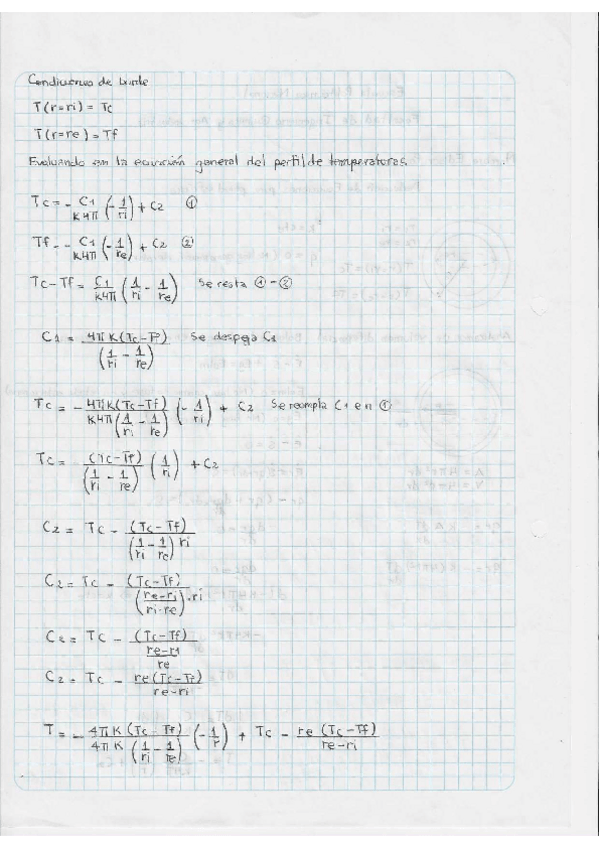 Condiciones de borde
T(r=ri) = Tc
T(r=re) = Tf
Evaluando en la ecuación general del perfil de temperaturas.
Tc = - C1/K4π (- 1/ri) + C2 ①
Tf = - C1/K4π (- 1/re) + C2 ②
Tc - Tf = C1/K4π (1/ri - 1/re) Se resta ① - ②
C1 = 4πK(Tc - Tf)/(1/ri - 1/re) Se despeja C1
Tc = - 4πK(Tc - Tf)/K4π(1/ri - 1/re) (- 1/ri) + C2 Se reempla C1 en ①
Tc = (Tc - Tf)/(1/ri - 1/re) (1/ri) + C2
C2 = Tc - (Tc - Tf)/(1/ri - 1/re) ri
C2 = Tc - (Tc - Tf)/((re - ri)/(ri·re)) · ri
C2 = Tc - (Tc - Tf)/((re - ri)/re)
C2 = Tc - re(Tc - Tf)/(re - ri)
T = - 4πK(Tc - Tf)/4πK(1/ri - 1/re) (- 1/r) + Tc - re(Tc - Tf)/(re - ri)